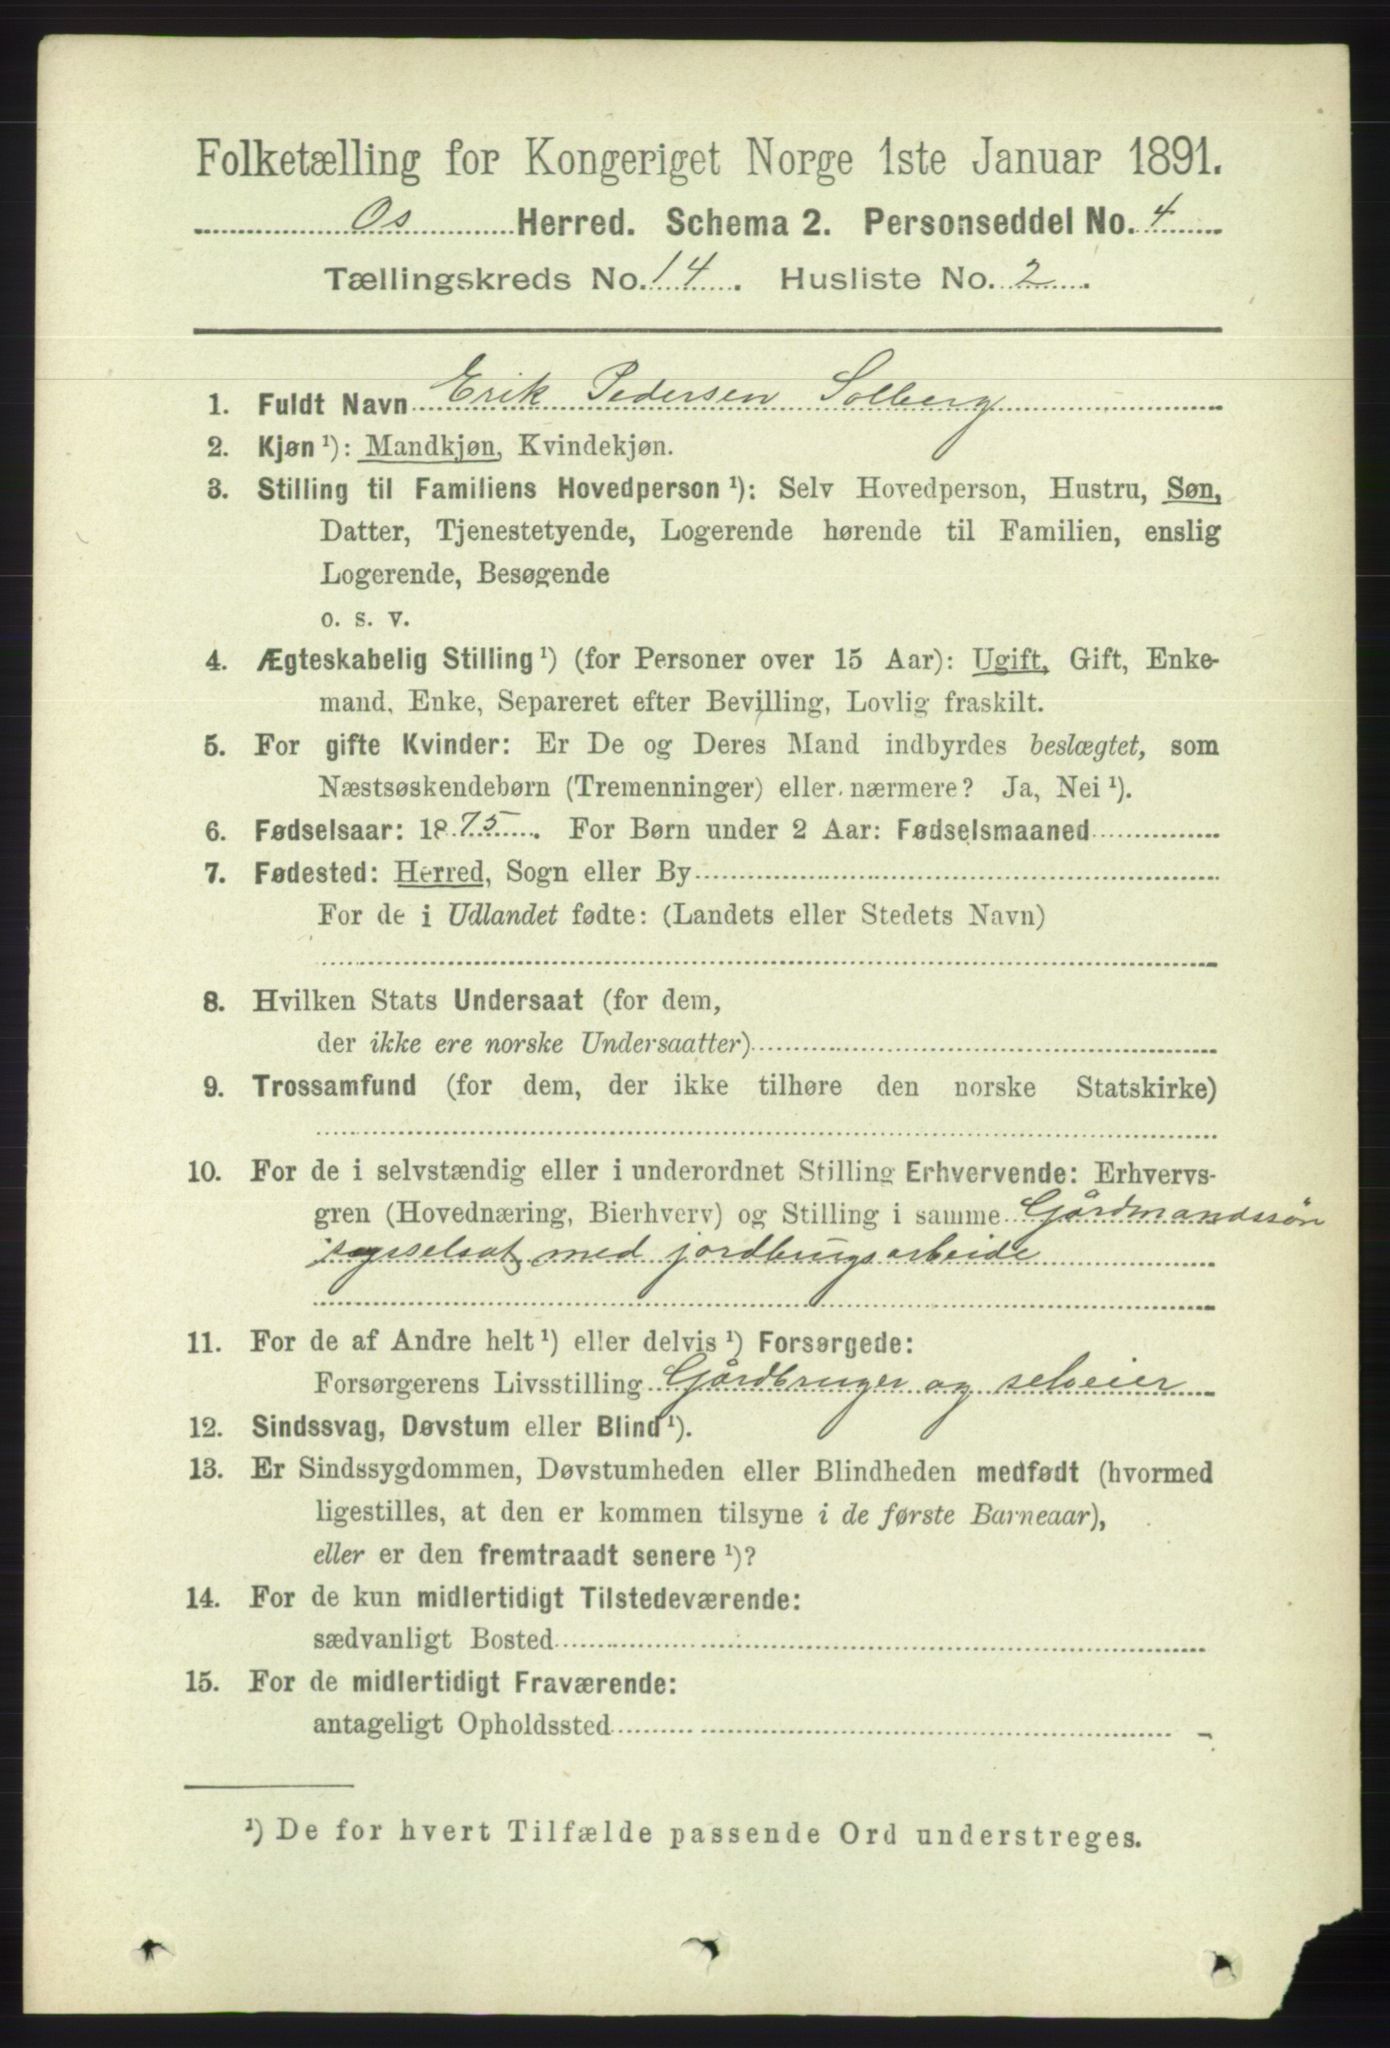 Folketælling for Kongeriget Norge 1ste Januar 1891.
Os Herred. Schema 2. Personseddel No. 4
Tællingskreds No. 14. Husliste No. 2.
1. Fuldt Navn Erik Pedersen Solberg
2. Kjøn ¹): Mandkjøn, Kvindekjøn.
3. Stilling til Familiens Hovedperson ¹): Selv Hovedperson, Hustru, Søn,
Datter, Tjenestetyende, Logerende hørende til Familien, enslig
Logerende, Besøgende
o. s. v.
4. Ægteskabelig Stilling ¹) (for Personer over 15 Aar): Ugift, Gift, Enke-
mand, Enke, Separeret efter Bevilling, Lovlig fraskilt.
5. For gifte Kvinder: Er De og Deres Mand indbyrdes beslægtet, som
Næstsøskendebørn (Tremenninger) eller nærmere? Ja, Nei ¹).
6. Fødselsaar: 1875. For Børn under 2 Aar: Fødselsmaaned
7. Fødested: Herred, Sogn eller By
For de i Udlandet fødte: (Landets eller Stedets Navn)
8. Hvilken Stats Undersaat (for dem,
der ikke ere norske Undersaatter)
9. Trossamfund (for dem, der ikke tilhøre den norske Statskirke)
10. For de i selvstændig eller i underordnet Stilling Erhvervende: Erhvervs-
gren (Hovednæring, Bierhverv) og Stilling i samme Gårdmandssøn
sysselsat med jordbrugsarbeide
11. For de af Andre helt ¹) eller delvis ¹) Forsørgede:
Forsørgerens Livsstilling Gårdbruger og selveier
12. Sindssvag, Døvstum eller Blind ¹).
13. Er Sindssygdommen, Døvstumheden eller Blindheden medfødt (hvormed
ligestilles, at den er kommen tilsyne i de første Barneaar),
eller er den fremtraadt senere ¹)?
14. For de kun midlertidigt Tilstedeværende:
sædvanligt Bosted
15. For de midlertidigt Fraværende:
antageligt Opholdssted
¹) De for hvert Tilfælde passende Ord understreges.